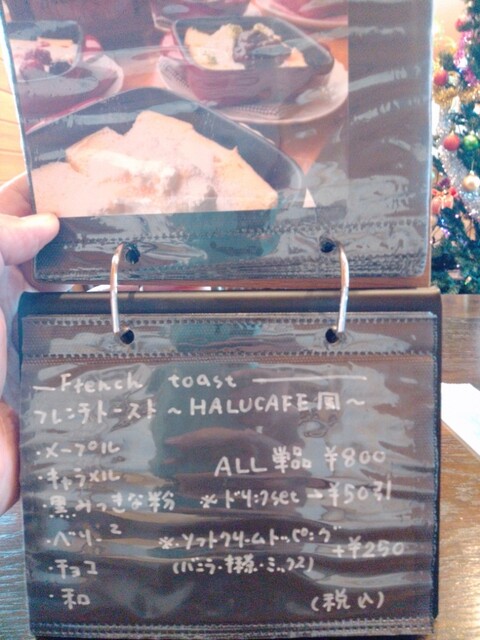 French toast
フレンチトースト ~ HALUCAFE風 ~
・メープル
・キャラメル
・黒みつきな粉
・ベリー2
・チョコ
・和
ALL 単品 ¥800
※ドリンクset → ¥50引
※ソフトクリームトッピング
+¥250
(バニラ・抹茶・ミックス)
(税込)